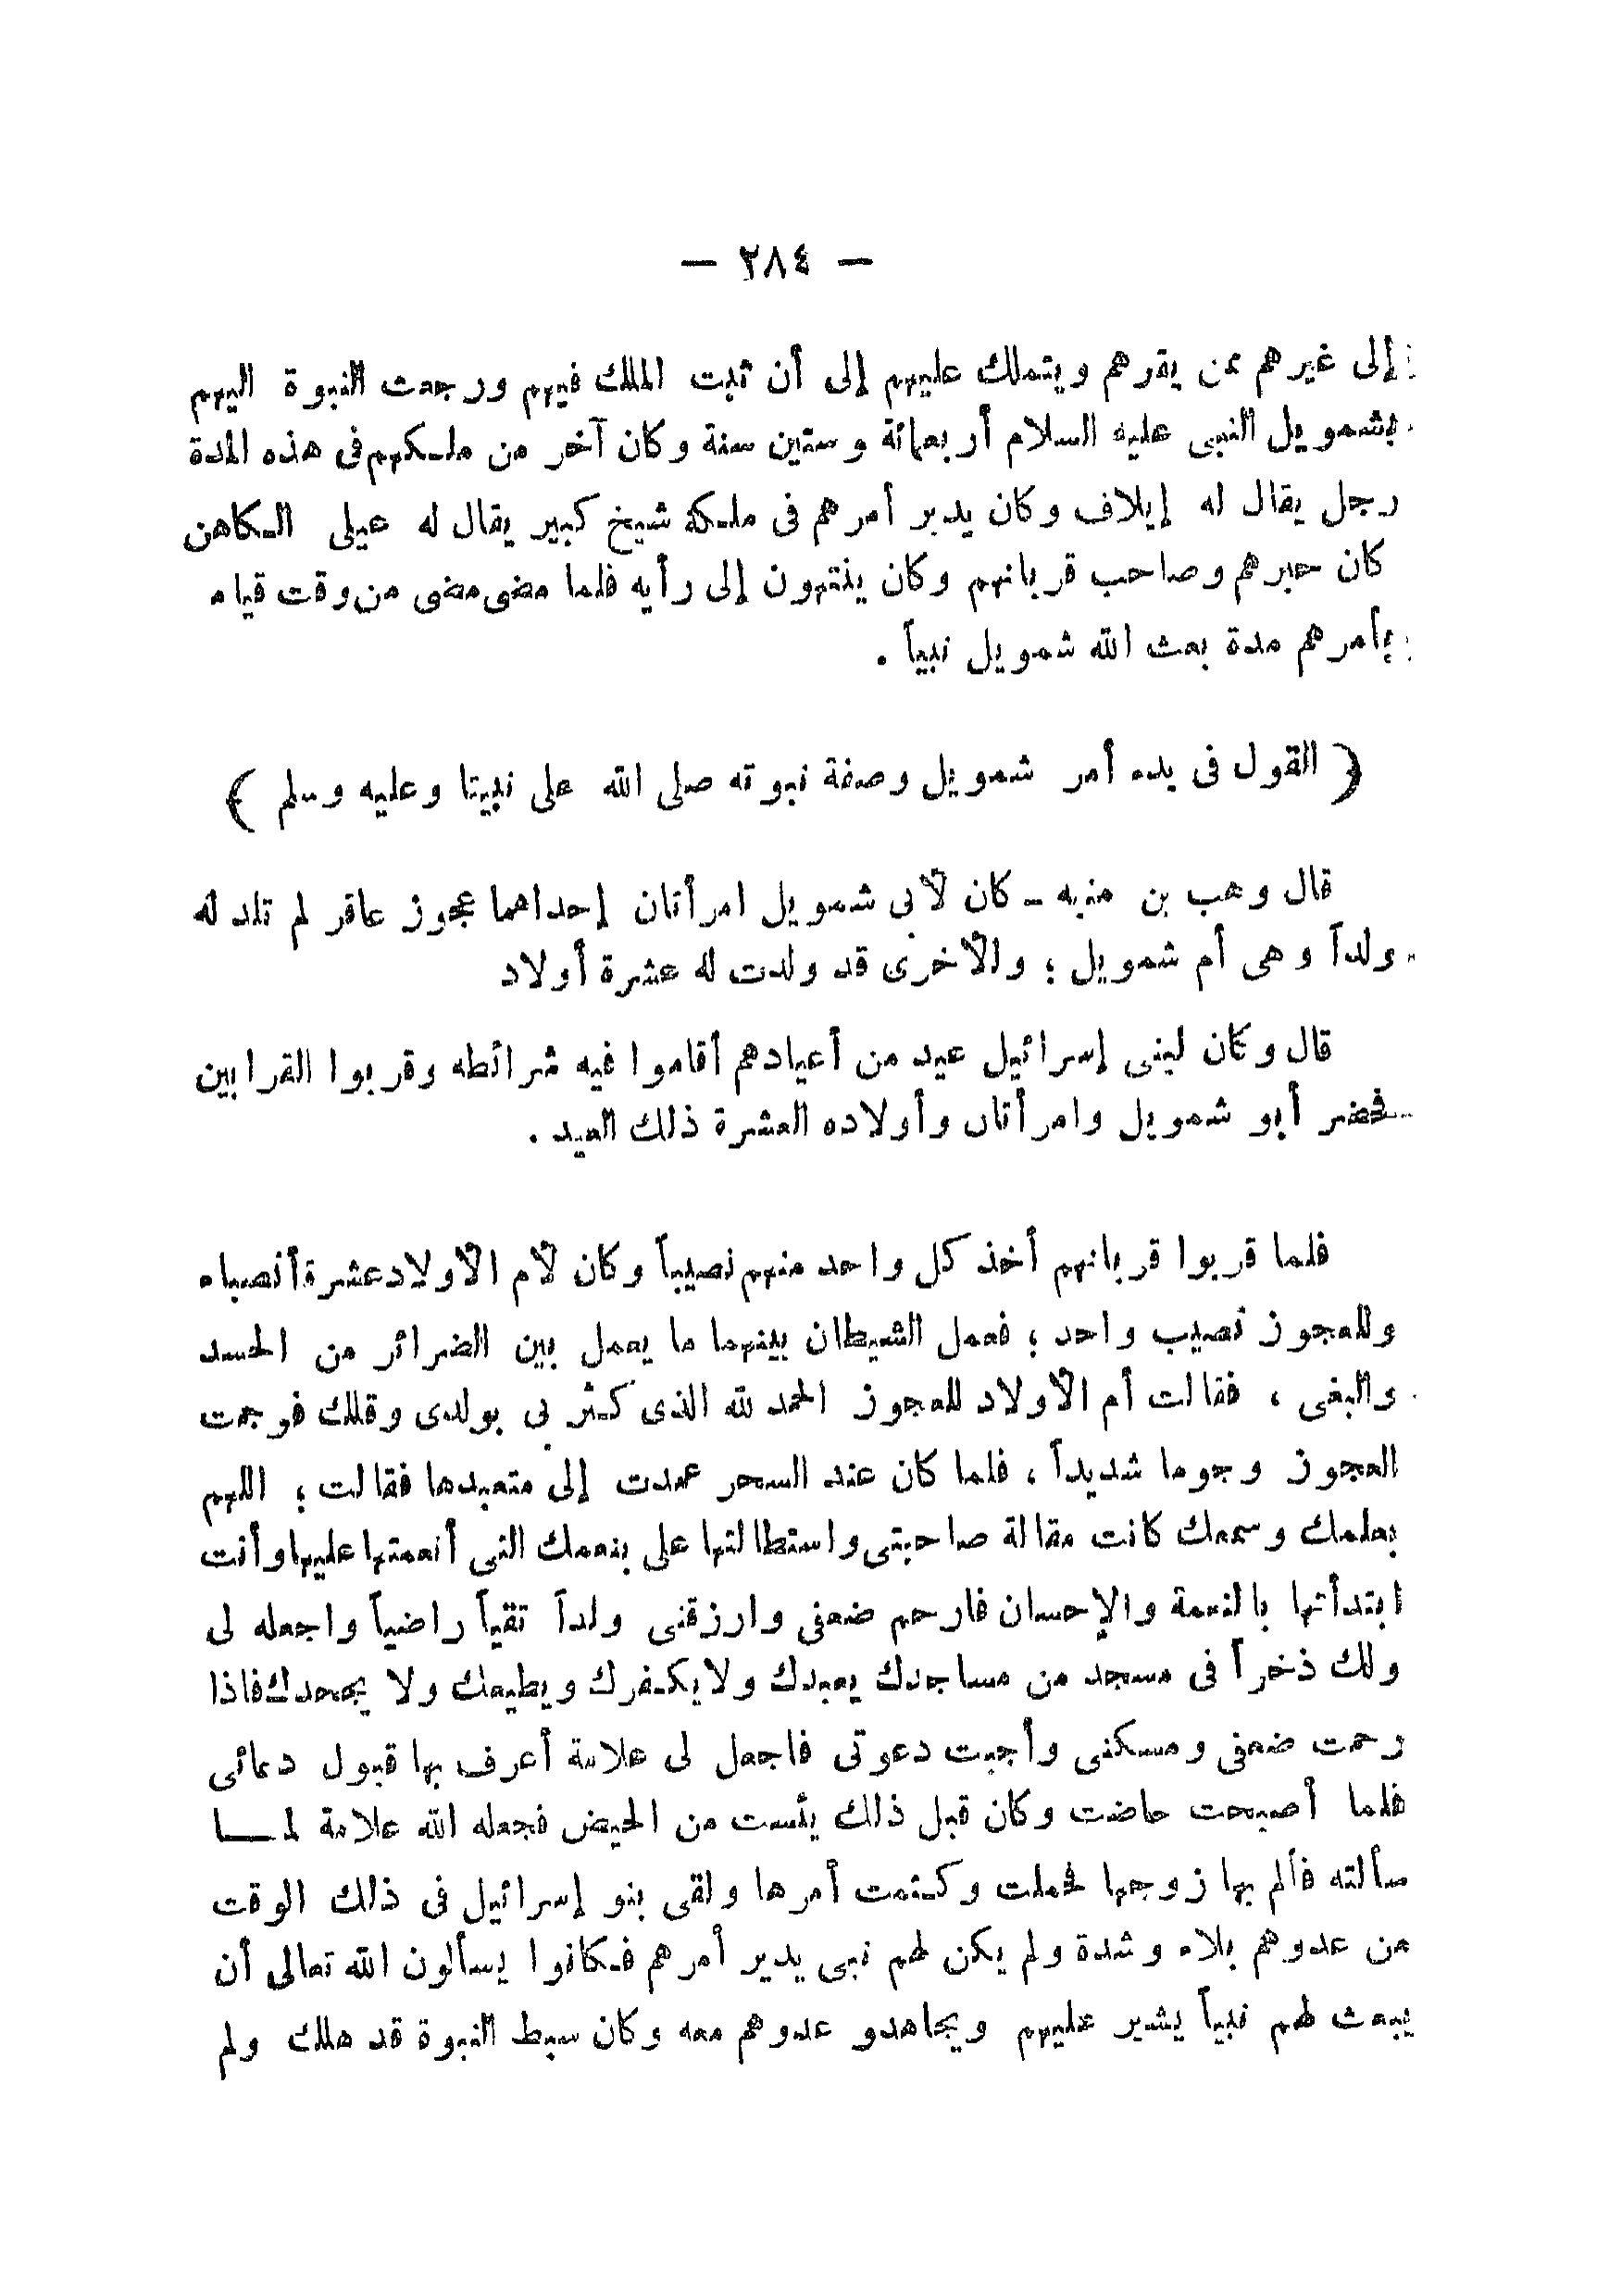 — ٢٨٤ —
إلى غيرهم ممن يقرهم ويتملك عليهم إلى أن ثبت الملك فيهم ورجعت النبوة اليهم
بشمويل النبى عليه السلام أربعمائة وستين سنة وكان آخر من ملكهم فى هذه المدة
رجل يقال له إيلاف وكان يدبر أمرهم فى ملكه شيخ كبير يقال له عيلى الكاهن
كان حبرهم وصاحب قربانهم وكان ينتهون إلى رأيه فلما مضى مضى من وقت قيامه
بأمرهم مدة بعث الله شمويل نبياً .
( القول فى بدء أمر شمويل وصفة نبوته صلى الله على نبينا وعليه وسلم )
قال وهب بن منبه ـ كان لأبى شمويل امرأتان إحداهما عجوز عاقر لم تلد له
ولداً وهى أم شمويل ؛ والأخرى قد ولدت له عشرة أولاد
قال وكان لبنى إسرائيل عيد من أعيادهم أقاموا فيه شرائطه وقربوا القرابين
فحضر أبو شمويل وامرأتان وأولاده العشرة ذلك العيد .
فلما قربوا قربانهم أخذ كل واحد منهم نصيباً وكان لأم الأولاد عشرة أنصباء
وللعجوز نصيب واحد ؛ فعمل الشيطان بينهما ما يعمل بين الضرائر من الحسد
والبغى ، فقالت أم الأولاد للعجوز الحمد لله الذى كثر بى بولدى وقللك فوجمت
العجوز وجوما شديداً ، فلما كان عند السحر عمدت إلى متعبدها فقالت ؛ اللهم
بعلمك وسمعك كانت مقالة صاحبتى واستطالتها على بنعمك التى أنعمتها عليها وأنت
ابتدأتها بالنعمة والإحسان فارحم ضعفى وارزقنى ولداً تقياً راضياً واجعله لى
ولك ذخراً فى مسجد من مساجدك يعبدك ولا يكفرك ويطيعك ولا يجحدك فاذا
رحمت ضعفى ومسكنى وأجبت دعوتى فاجعل لى علامة أعرف بها قبول دعائى
فلما أصبحت حاضت وكان قبل ذلك يئست من الحيض فجعله الله علامة لمـــا
سألته فألم بها زوجها فحملت وكتمت أمرها ولقى بنو إسرائيل فى ذلك الوقت
من عدوهم بلاء وشدة ولم يكن لهم نبى يدير أمرهم فكانوا يسألون الله تعالى أن
يبعث لهم نبياً يشير عليهم ويجاهدو عدوهم معه وكان سبط النبوة قد هلك ولم